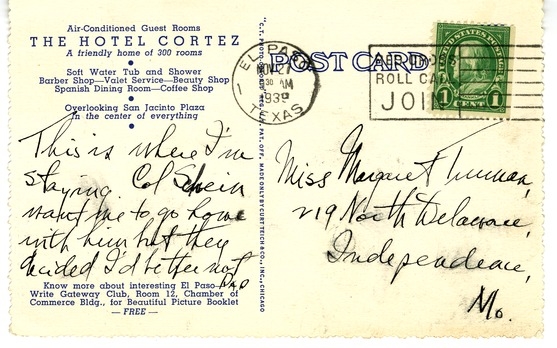 Air-Conditioned Guest Rooms
THE HOTEL CORTEZ
A friendly home of 300 rooms
Soft Water Tub and Shower
Barber Shop—Valet Service—Beauty Shop
Spanish Dining Room—Coffee Shop
Overlooking San Jacinto Plaza
In the center of everything
This is where I'm
staying. Col
want me to go home
with him but they
decided I'd better not
Dad
Know more about interesting El Paso
Write Gateway Club, Room 12, Chamber of
Commerce Bldg., for Beautiful Picture Booklet
— FREE —
PAT. OFF. MADE ONLY BY CURT TEICH & CO., INC., CHICAGO
POST CARD
EL PASO
NOV 27
AM
1939
TEXAS
1
RED CROSS
ROLL CALL
JOIN
UNITED STATES POSTAGE
1 CENT 1
Miss Margaret Truman,
219 North Delaware,
Independence,
Mo.